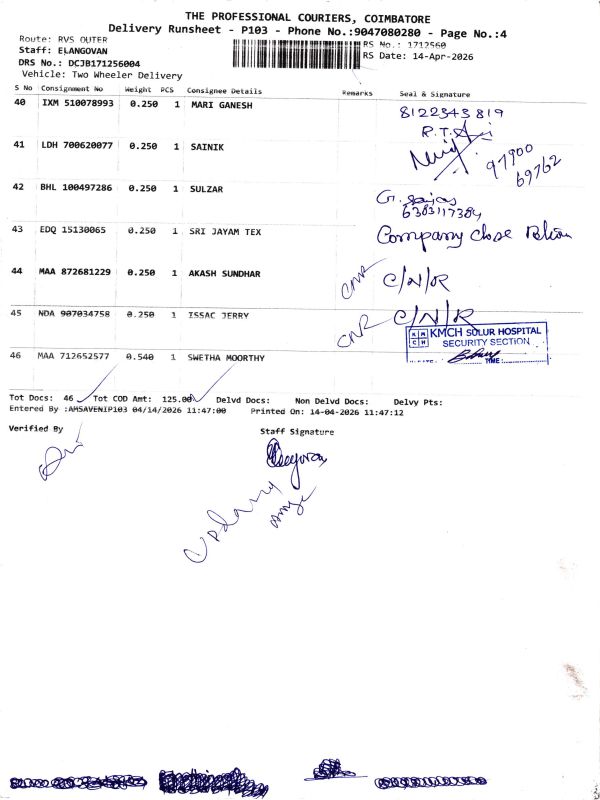 THE PROFESSIONAL COURIERS, COIMBATORE
Delivery Runsheet - P103 - Phone No.:9047080280 - Page No.:4
Route: RVS OUTER
RS No.: 1712560
Staff: ELANGOVAN
RS Date: 14-Apr-2026
DRS No.: DCJB171256004
Vehicle: Two Wheeler Delivery
S No Consignment No Weight PCS Consignee Details Remarks Seal & Signature
40 IXM 510078993 0.250 1 MARI GANESH
8122343819
R.T.
41 LDH 700620077 0.250 1 SAINIK
97900
69762
42 BHL 100497286 0.250 1 SULZAR
6383117384
43 EDQ 15130065 0.250 1 SRI JAYAM TEX Company Close
44 MAA 872681229 0.250 1 AKASH SUNDHAR CNR C/N/R
45 NDA 907034758 0.250 1 ISSAC JERRY CNR C/N/R
KMCH SULUR HOSPITAL
SECURITY SECTION
DATE: TIME:
46 MAA 712652577 0.540 1 SWETHA MOORTHY
Tot Docs: 46 Tot COD Amt: 125.00 Delvd Docs: Non Delvd Docs: Delvy Pts:
Entered By :AMSAVENIP103 04/14/2026 11:47:00 Printed On: 14-04-2026 11:47:12
Verified By Staff Signature